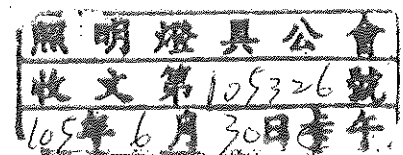 照明燈具公會
收文第105326號
105年6月30日 午